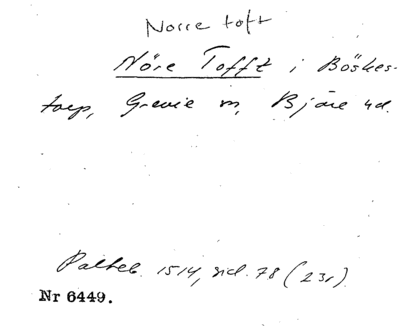 Norre toft
Nöre Tofft i Böskes-
torp, Grevie sn, Bjäre hd.
Palteb. 1514, sid. 78 (23r)
Nr 6449.